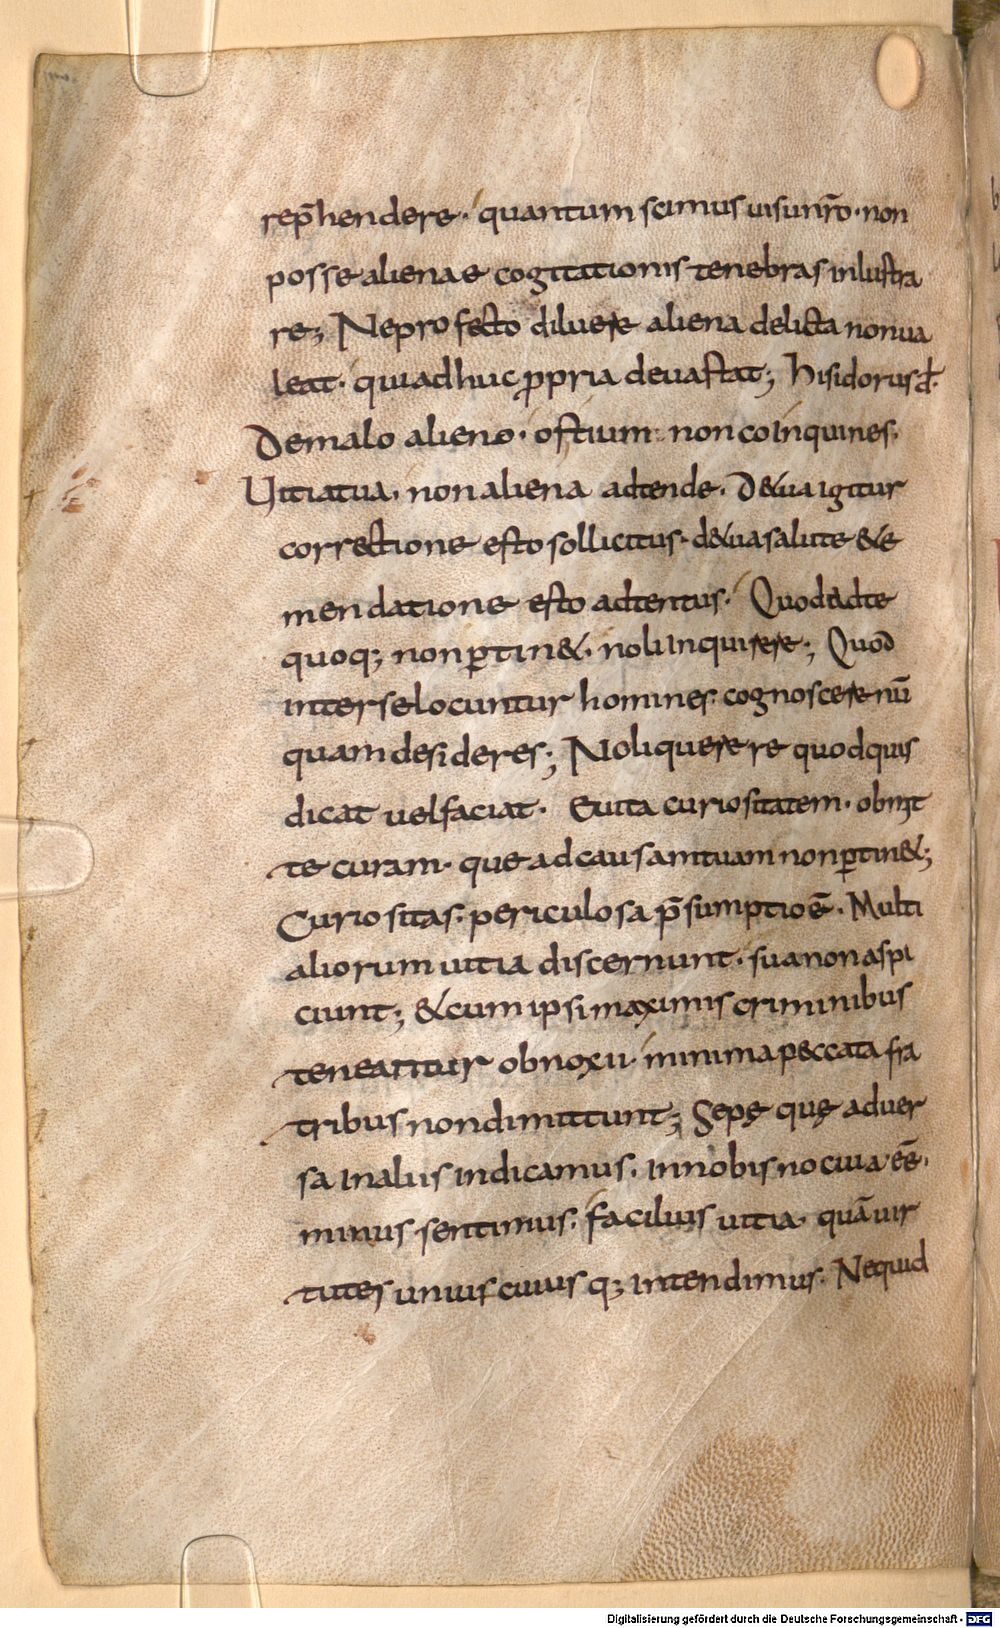 rep̄hendere· quantum scimus uisunr̄o· non
posse alienae cogitationis tenebras inlustra
re; Neprofecto diluere aliena delicta nonua
leat· quiadhuc ꝓpria deuastat; hisidorus đ·
Demalo alieno· ostium noncoinquines·
Uitiatua· nonaliena adtende· D&uaigitur
correctione esto sollicitus· d&uasalute &e
mendatione esto adtentus· Quodadte
quoq; nonꝑtin&· noliinquirere; Quod
interselocuntur homines· cognoscere nū
quam desideres; Noliquerere quodquis
dicat uelfaciat· Euita curiositatem· obmit
te curam· que adcausamtuam nonꝑtin&;
Curiositas· periculosa p̄sumptioē· Multi
aliorum uitia discernunt· suanonaspi
ciunt; &cum ipsi maximis criminibus
teneantur obnoxii· minima peccata fra
tribus nondimittunt; Sepę quę aduer
sa inaliis indicamus· innobis nociua eē·
minus sentimus· facilius uitia· quā uir
tutes uniuscuiusq; intendimus· Nequid
Digitalisierung gefördert durch die Deutsche Forschungsgemeinschaft - DFG